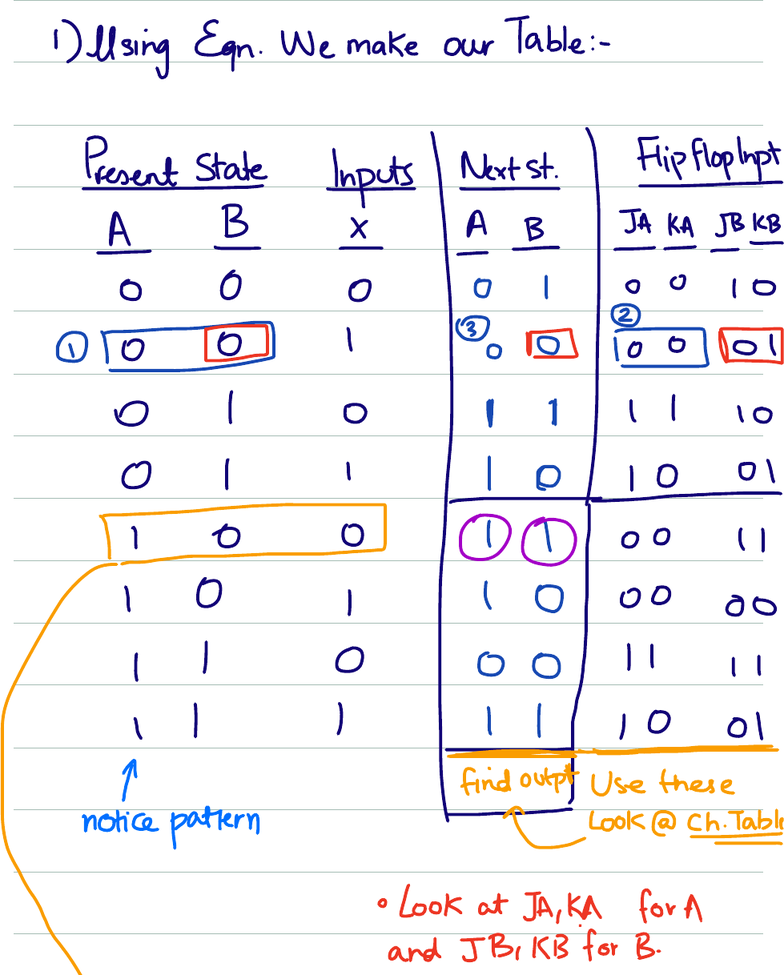 1) Using Eqn. We make our Table:-
Present State Inputs Next St. Flip Flop Inpt
A B X A B JA KA JB KB
0 0 0 0 1 0 0 1 0
① 0 0 1 ③ 0 0 ② 0 0 0 1
0 1 0 1 1 1 1 1 0
0 1 1 1 0 1 0 0 1
1 0 0 1 1 0 0 1 1
1 0 1 1 0 0 0 0 0
1 1 0 0 0 1 1 1 1
1 1 1 1 1 1 0 0 1
notice pattern
find outpt Use these
Look @ Ch. Table
• Look at JA, KA for A
and JB, KB for B.